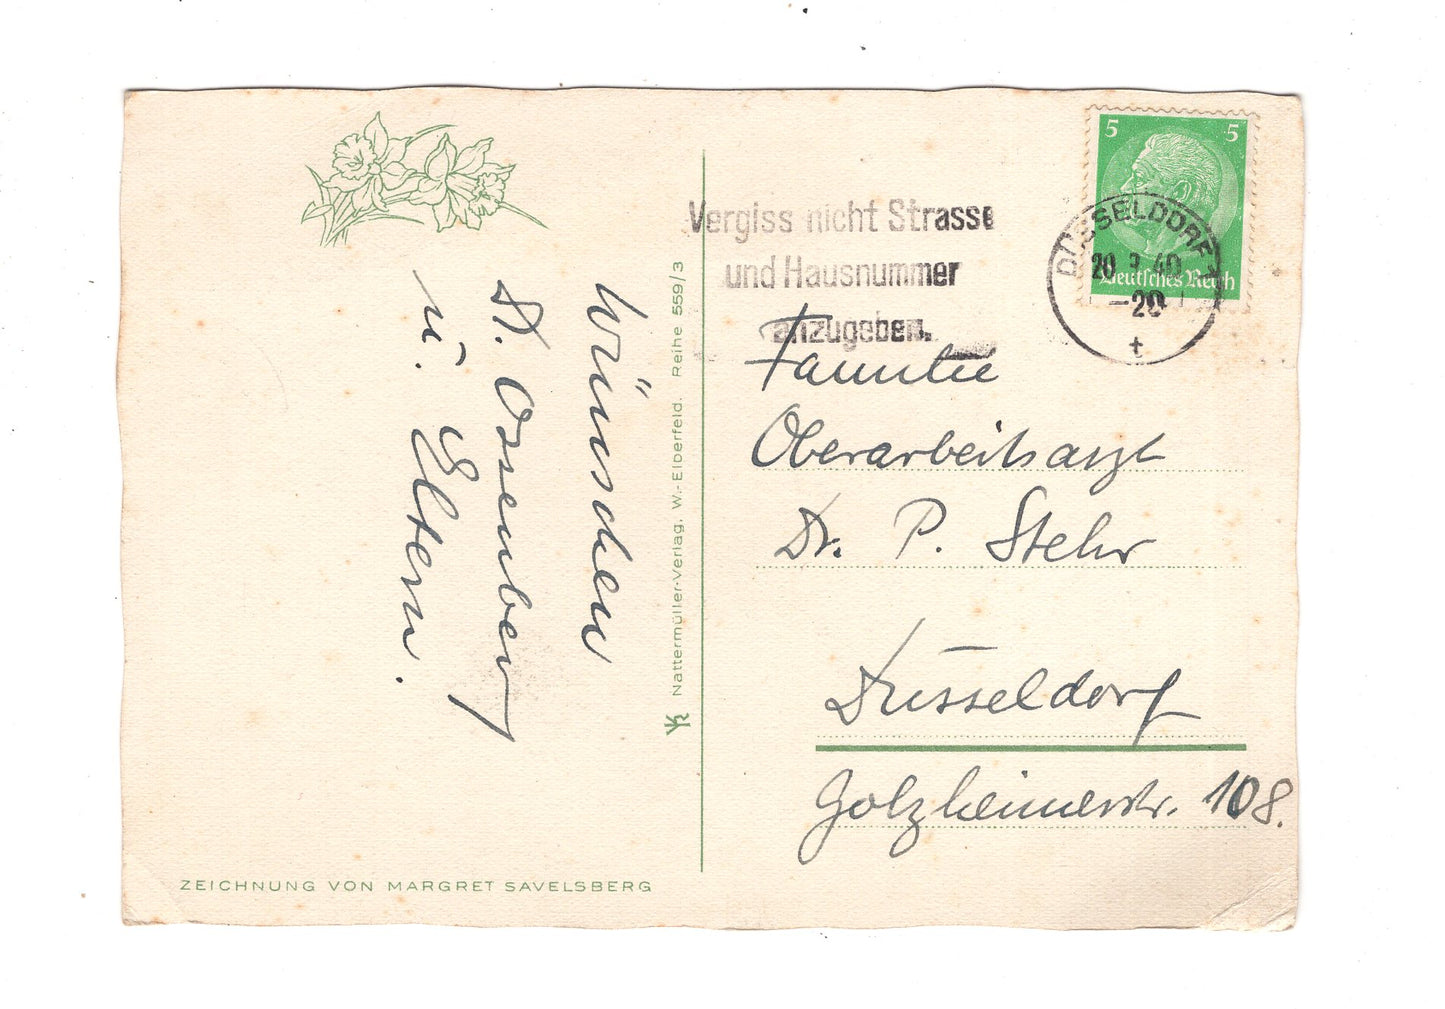 Vergiss nicht Strasse
und Hausnummer
anzugeben.
5 5
Deutsches Reich
DÜSSELDORF
20.3.40
-20
t
Familie
Oberarbeitsarzt
Dr. P. Stehr
Düsseldorf
Golzheimerstr. 108.
wünschen
u. Eltern.
Nattermüller-Verlag, W.-Elberfeld. Reihe 559/3
ZEICHNUNG VON MARGRET SAVELSBERG